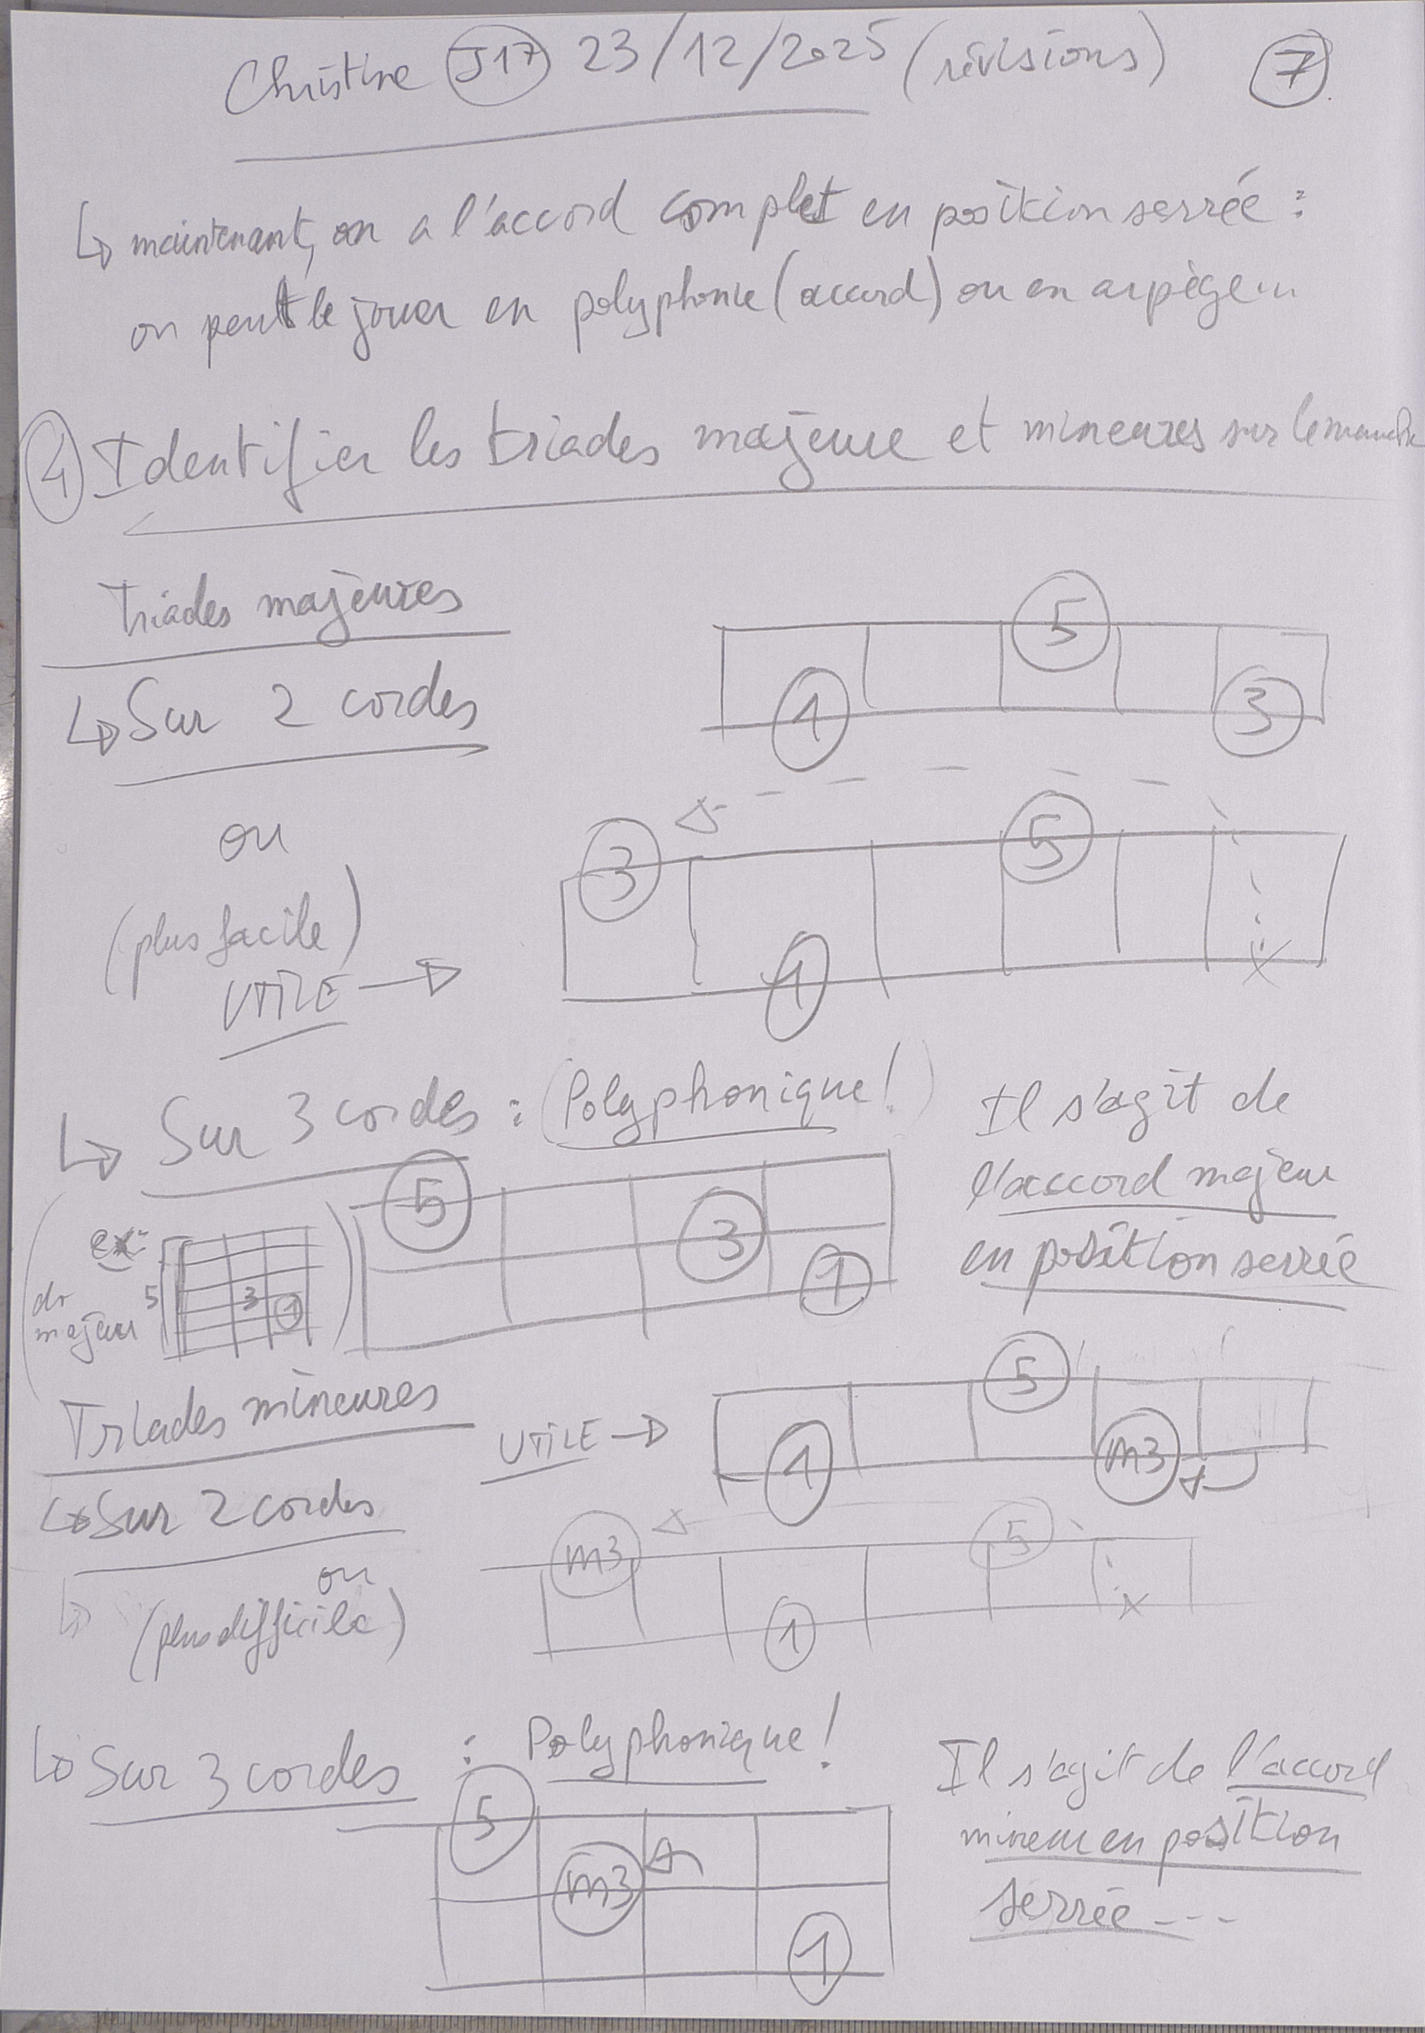 Christine J17 23/12/2025 (révisions) 7
↳ maintenant, on a l'accord complet en position serrée :
on peut le jouer en polyphonie (accord) ou en arpège...
4 Identifier les triades majeure et mineures sur le manche
Triades majeures
5
1
3
↳ Sur 2 cordes
ou
3
5
1
(plus facile)
UTILE →
↳ Sur 3 cordes : (Polyphonique !)
Il s'agit de
l'accord majeur
en position serrée
5
3
1
ex:
do
majeur
5
3
1
Triades mineures
UTILE →
5
1
m3
↳ Sur 2 cordes
ou
(plus difficile)
m3
5
1
↳ Sur 3 cordes : Polyphonique !
Il s'agit de l'accord
mineur en position
serrée ---
5
m3
1